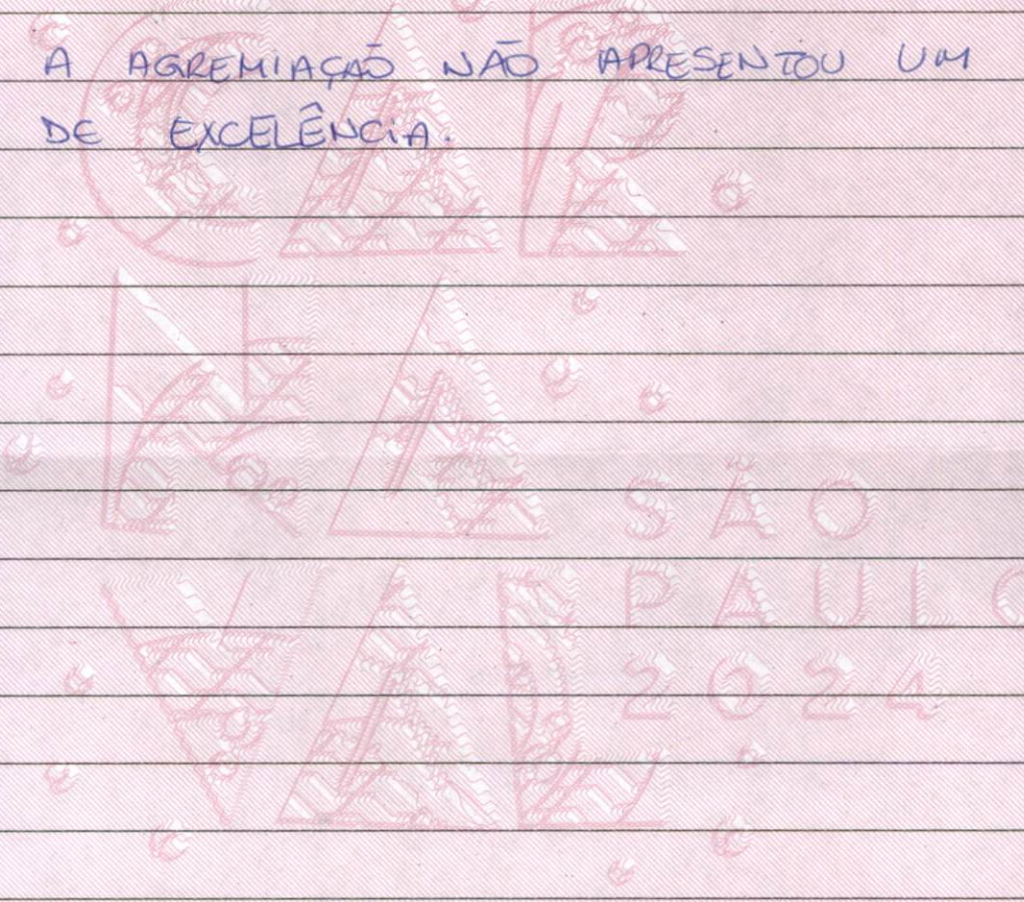 A AGREMIAÇÃO NÃO APRESENTOU UM
DE EXCELÊNCIA.
CAR
NA
SÃO
VAL
PAULO
2024